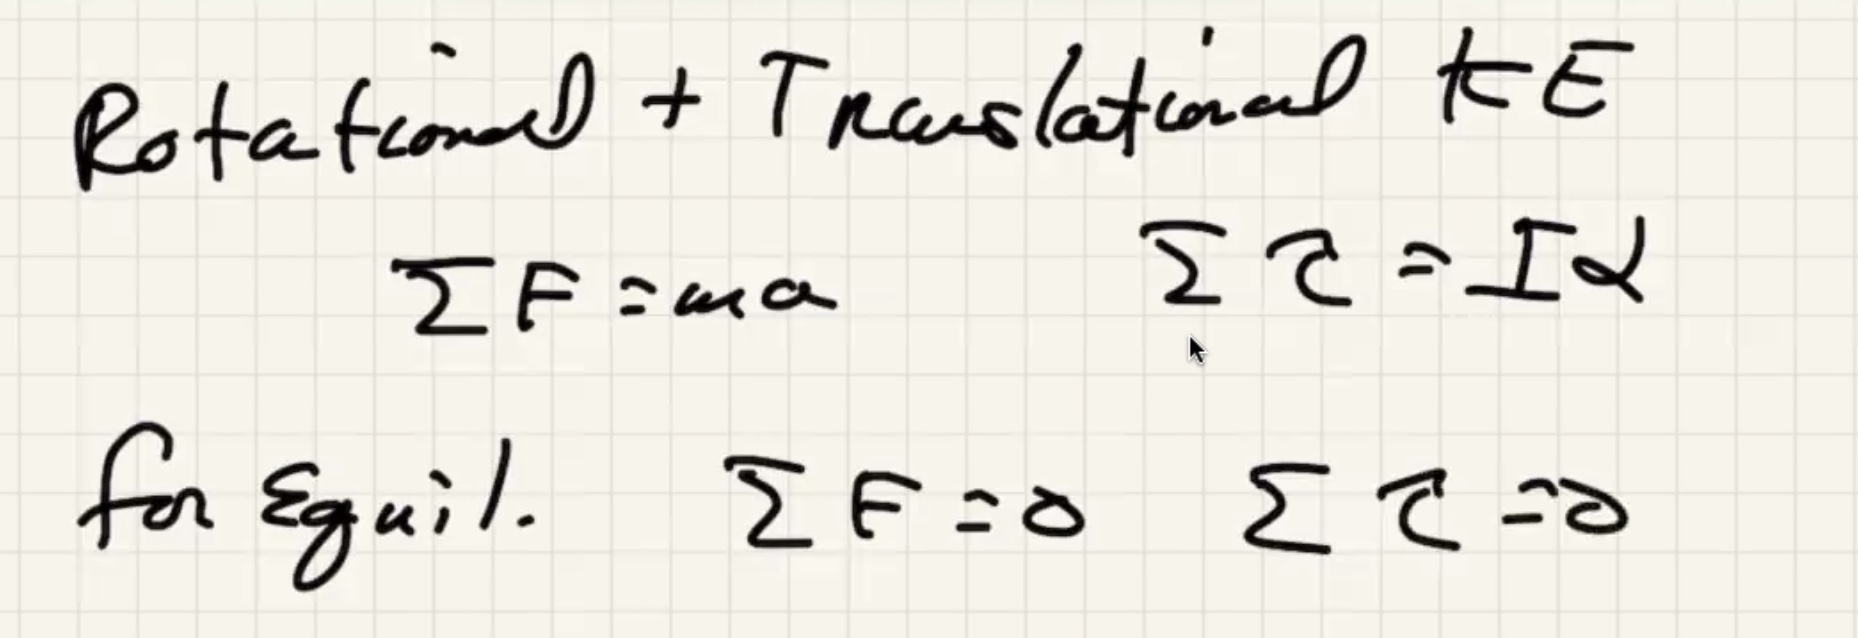 Rotational + Translational KE
ΣF = ma Στ = Iα
for Equil. ΣF = 0 Στ = 0